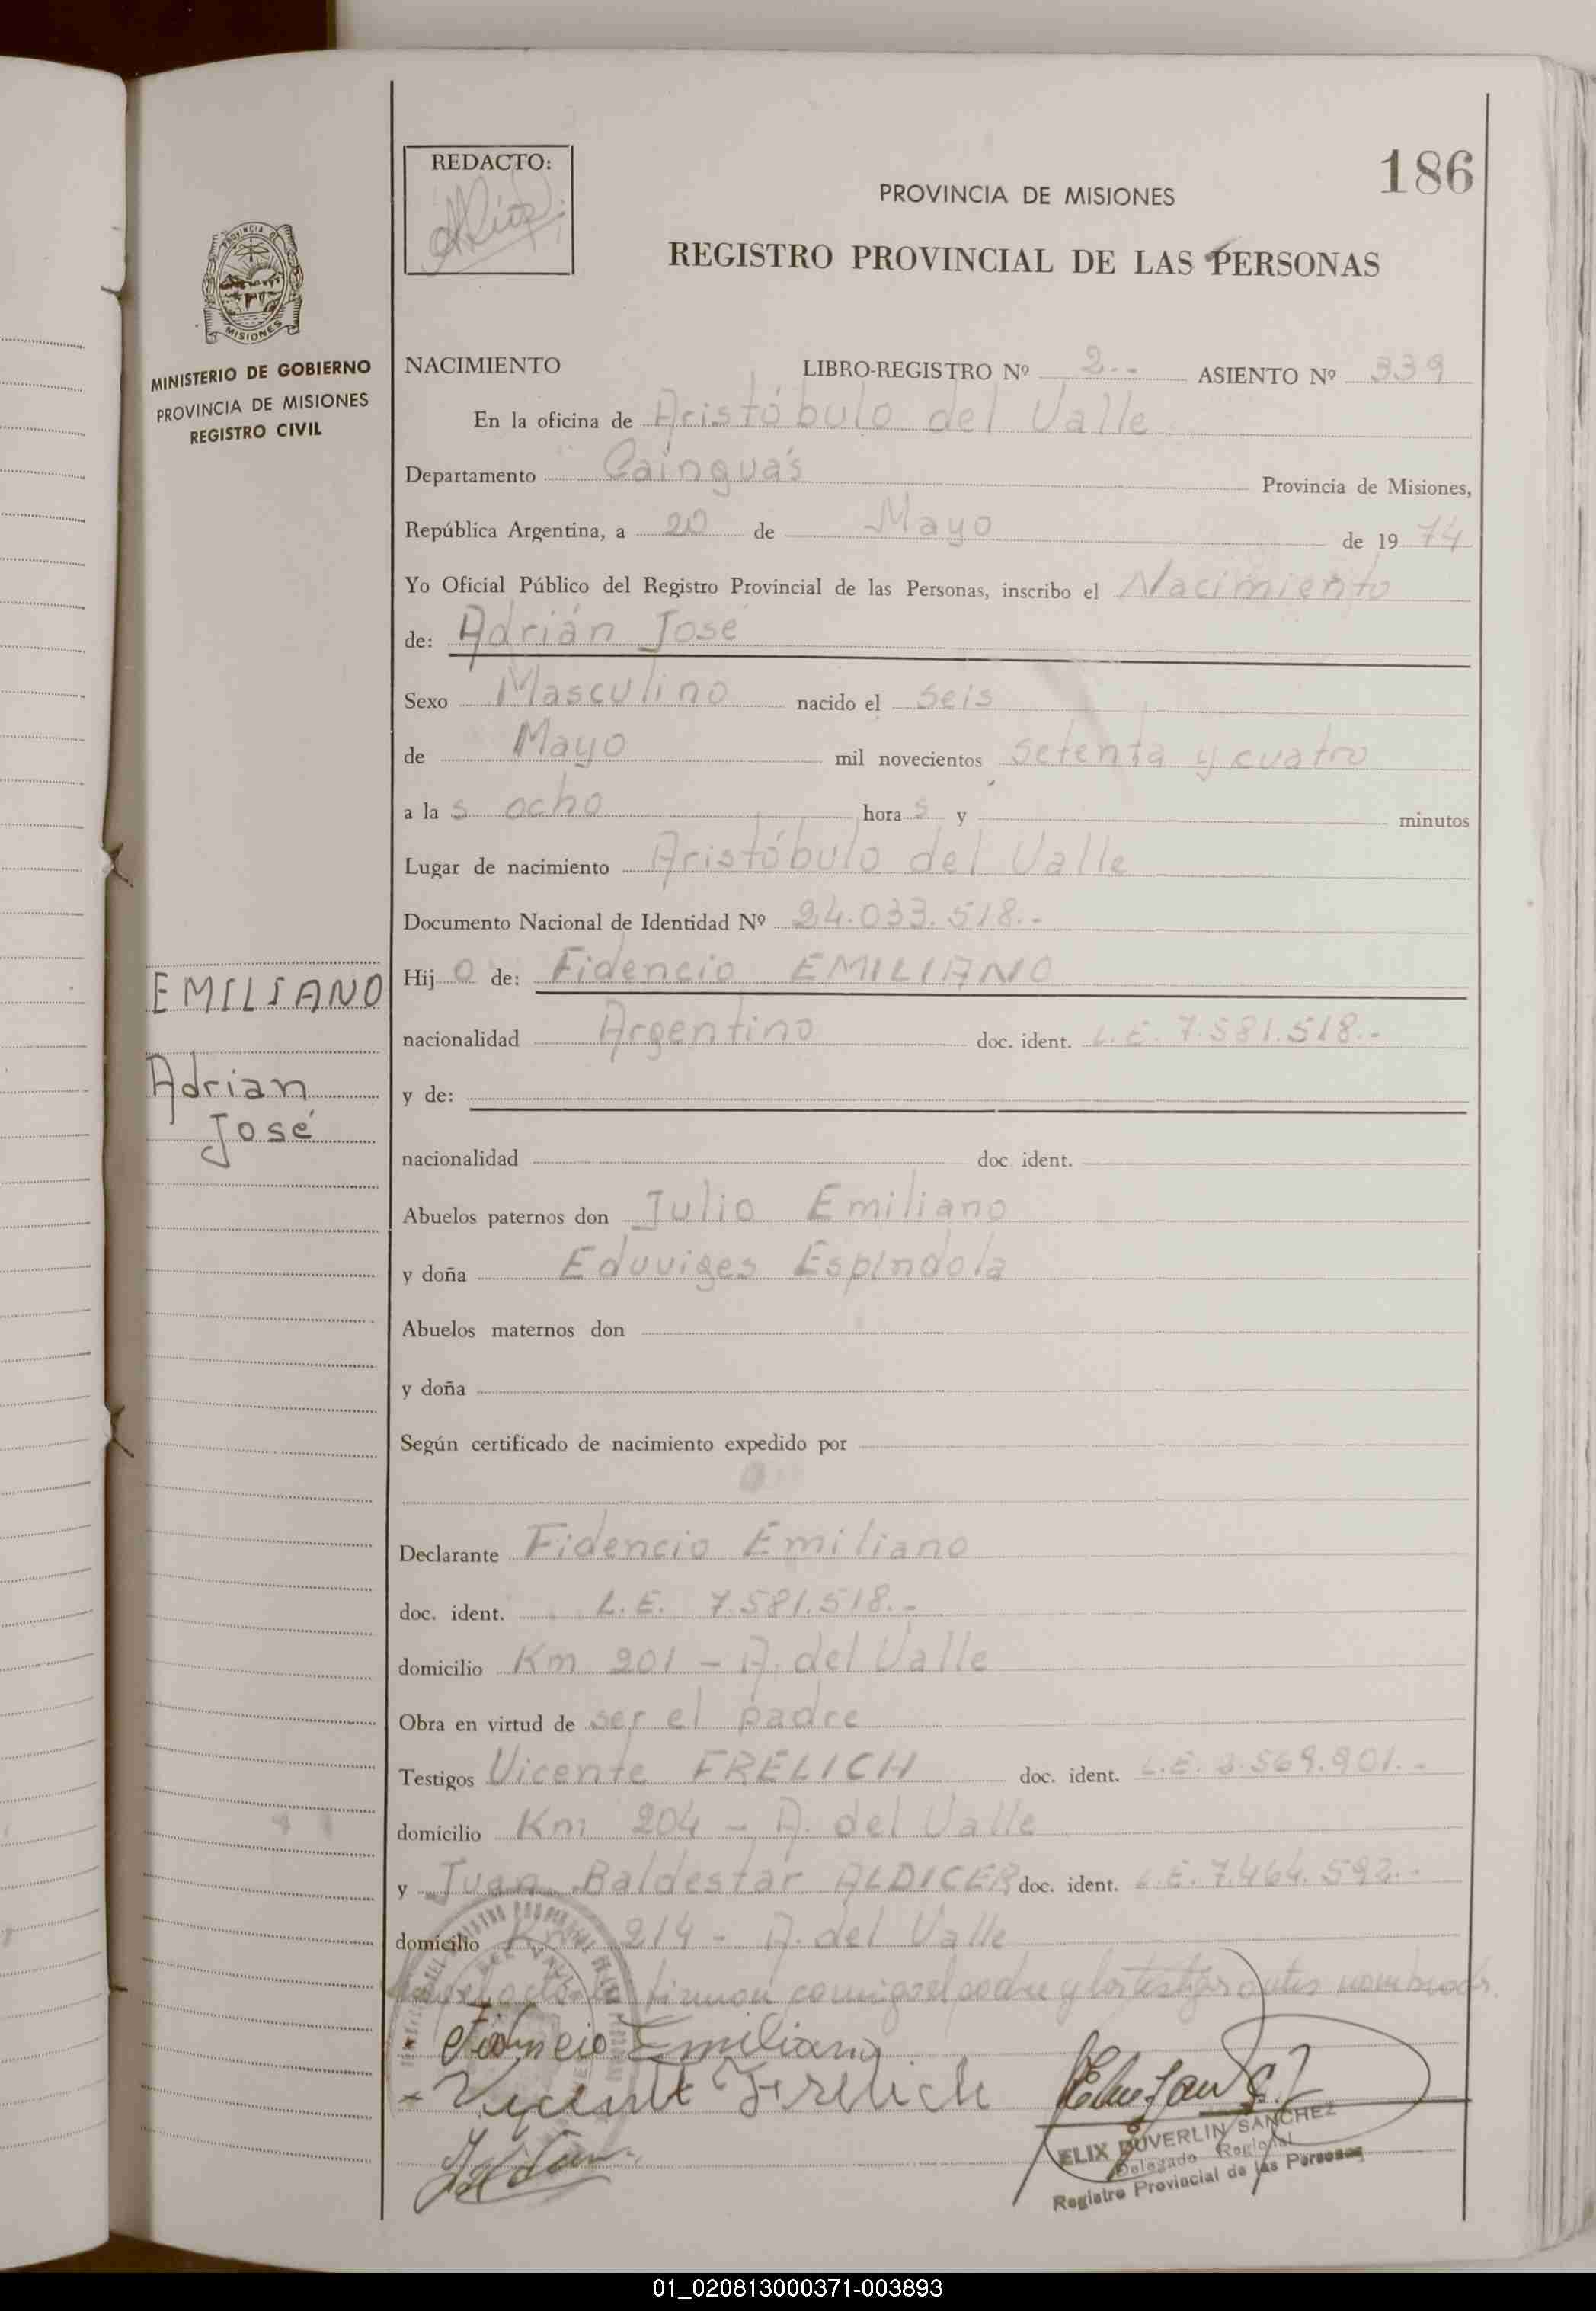 186
REDACTO:
PROVINCIA DE MISIONES
REGISTRO PROVINCIAL DE LAS PERSONAS
PROVINCIA DE
MISIONES
MINISTERIO DE GOBIERNO
PROVINCIA DE MISIONES
REGISTRO CIVIL
NACIMIENTO LIBRO-REGISTRO Nº 2-- ASIENTO Nº 339
En la oficina de Aristóbulo del Valle
Departamento Cainguás Provincia de Misiones,
República Argentina, a 20 de Mayo de 1974
Yo Oficial Público del Registro Provincial de las Personas, inscribo el Nacimiento
de: Adrián José
Sexo Masculino nacido el seis
de Mayo mil novecientos setenta y cuatro
a las ocho horas y minutos
Lugar de nacimiento Aristóbulo del Valle
Documento Nacional de Identidad Nº 24.033.518.-
Hijo de: Fidencio EMILIANO
EMILIANO
nacionalidad Argentino doc. ident. L.E. 7.581.518.-
Adrian
José
y de:
nacionalidad doc. ident.
Abuelos paternos don Julio Emiliano
y doña Eduviges Espíndola
Abuelos maternos don
y doña
Según certificado de nacimiento expedido por
Declarante Fidencio Emiliano
doc. ident. L.E. 7.581.518.-
domicilio Km 201 - A. del Valle
Obra en virtud de ser el padre
Testigos Vicente FRELICH doc. ident. L.E. 3.569.901.-
domicilio Km 204 - A. del Valle
y Juan Baldestar ALDICER doc. ident. L.E. 7.464.592.-
domicilio Km 214 - A. del Valle
firman conmigo el padre y los testigos antes nombrados.
Fidencio Emiliano
Vicente Frelich
ELIX DUVERLIN SANCHEZ
Delegado Regional
Registro Provincial de las Personas
01_020813000371-003893